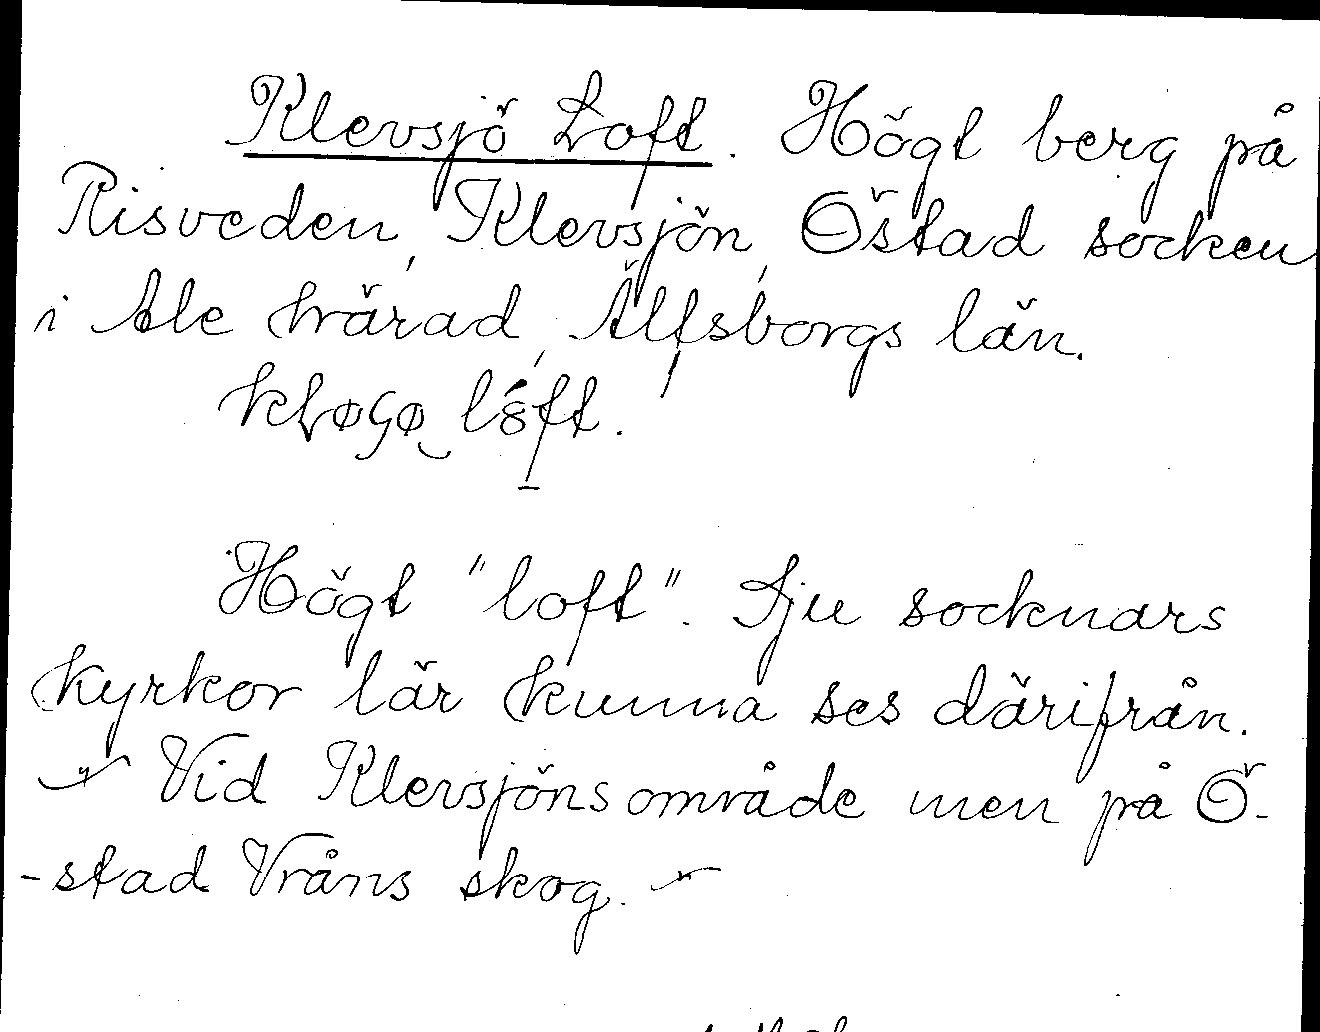 Klevsjö Loft. Högt berg på
Risveden, Klevsjön, Östad socken
i Ale härad, Älfsborgs län.
Högt "loft". Sju socknars
kyrkor lär kunna ses därifrån.
Vid Klevsjöns område men på Ö-
-stad Vråns skog.